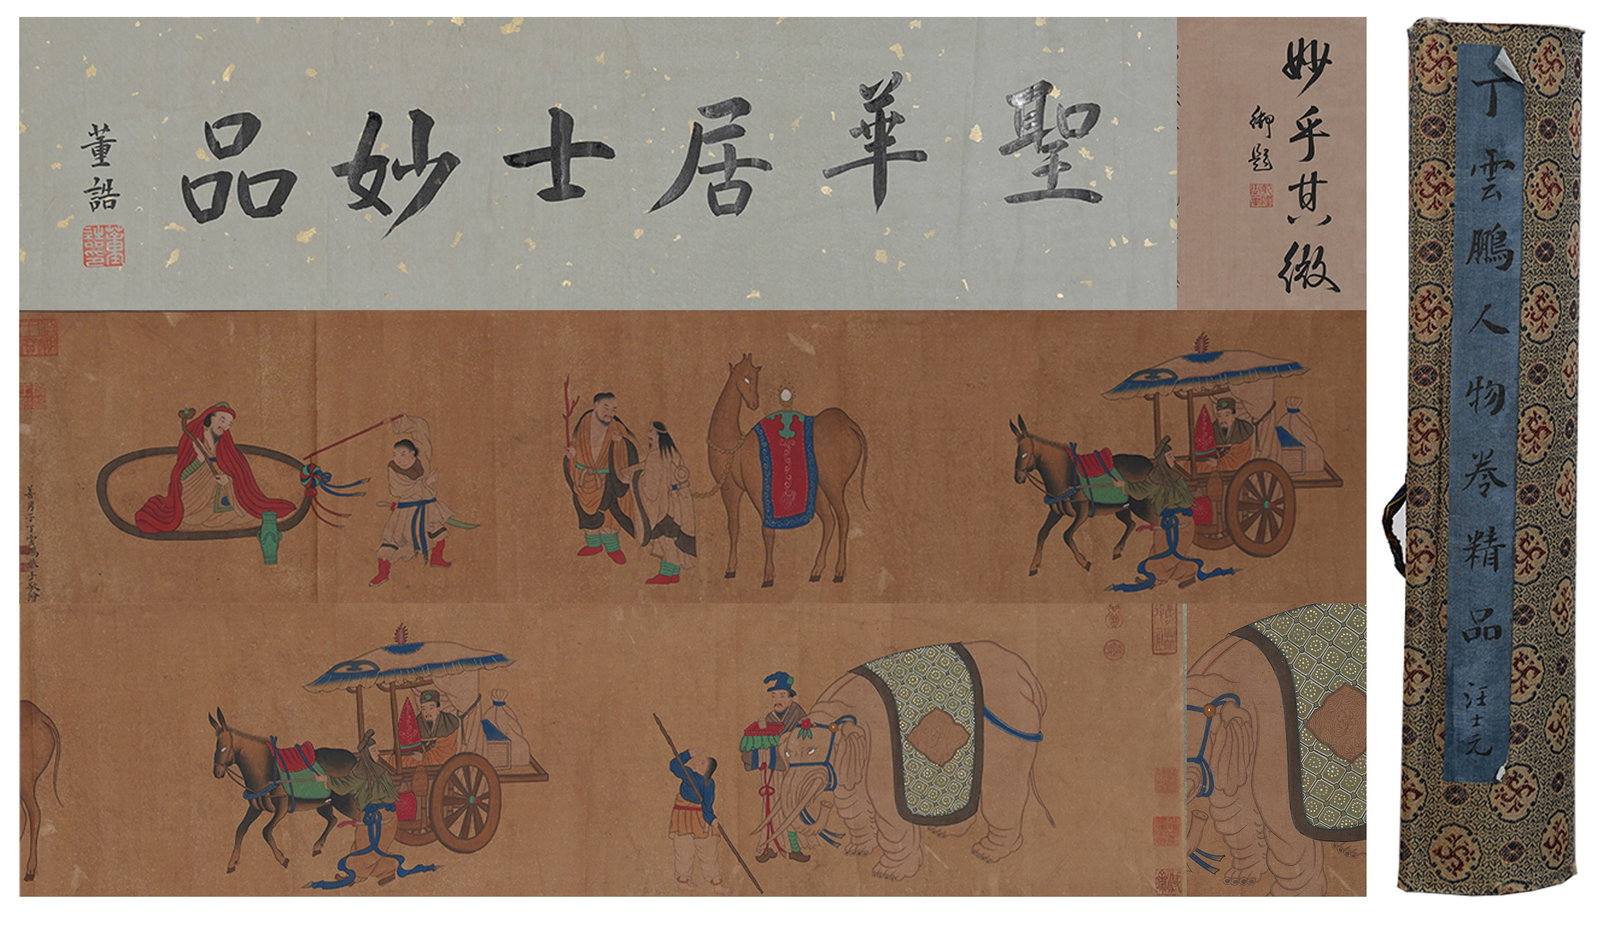 妙乎其微
御題
聖華居士妙品
董誥
丁雲鵬人物卷精品
汪士元